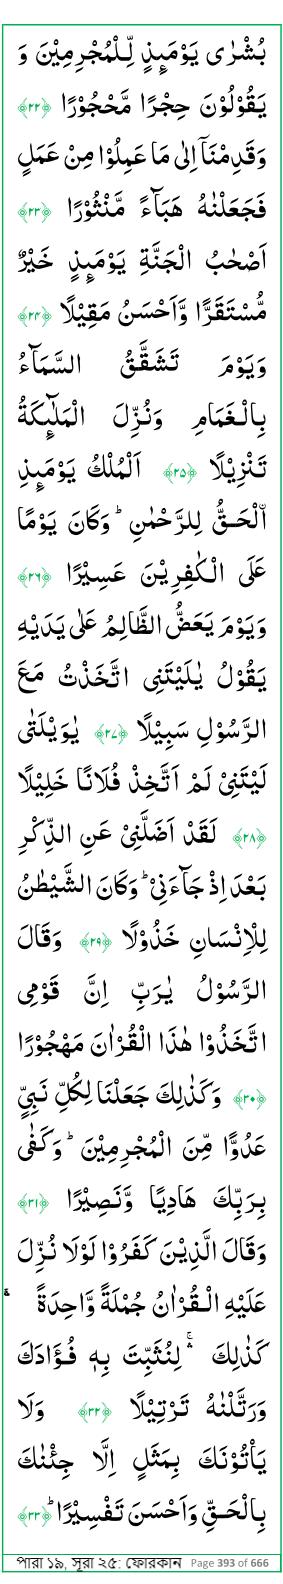 بُشْرٰى يَوْمَىِٕذٍ لِّلْمُجْرِمِيْنَ وَ
يَقُوْلُوْنَ حِجْرًا مَّحْجُوْرًا ﴿۲۲﴾
وَقَدِمْنَاۤ اِلٰى مَا عَمِلُوْا مِنْ عَمَلٍ
فَجَعَلْنٰهُ هَبَآءً مَّنْثُوْرًا ﴿۲۳﴾
اَصْحٰبُ الْجَنَّةِ يَوْمَىِٕذٍ خَيْرٌ
مُّسْتَقَرًّا وَّاَحْسَنُ مَقِيْلًا ﴿۲۴﴾
وَيَوْمَ تَشَقَّقُ السَّمَآءُ
بِالْغَمَامِ وَنُزِّلَ الْمَلٰٓىِٕكَةُ
تَنْزِيْلًا ﴿۲۵﴾ اَلْمُلْكُ يَوْمَىِٕذِ
اۨلْحَقُّ لِلرَّحْمٰنِ ؕ وَكَانَ يَوْمًا
عَلَى الْكٰفِرِيْنَ عَسِيْرًا ﴿۲۶﴾
وَيَوْمَ يَعَضُّ الظَّالِمُ عَلٰى يَدَيْهِ
يَقُوْلُ يٰلَيْتَنِى اتَّخَذْتُ مَعَ
الرَّسُوْلِ سَبِيْلًا ﴿۲۷﴾ يٰوَيْلَتٰى
لَيْتَنِىْ لَمْ اَتَّخِذْ فُلَانًا خَلِيْلًا
﴿۲۸﴾ لَقَدْ اَضَلَّنِىْ عَنِ الذِّكْرِ
بَعْدَ اِذْ جَآءَنِىْ ؕ وَكَانَ الشَّيْطٰنُ
لِلْاِنْسَانِ خَذُوْلًا ﴿۲۹﴾ وَقَالَ
الرَّسُوْلُ يٰرَبِّ اِنَّ قَوْمِى
اتَّخَذُوْا هٰذَا الْقُرْاٰنَ مَهْجُوْرًا
﴿۳۰﴾ وَكَذٰلِكَ جَعَلْنَا لِكُلِّ نَبِىٍّ
عَدُوًّا مِّنَ الْمُجْرِمِيْنَ ؕ وَكَفٰى
بِرَبِّكَ هَادِيًا وَّنَصِيْرًا ﴿۳۱﴾
وَقَالَ الَّذِيْنَ كَفَرُوْا لَوْلَا نُزِّلَ
عَلَيْهِ الْقُرْاٰنُ جُمْلَةً وَّاحِدَةً ۛۚ
كَذٰلِكَ ۛۚ لِنُثَبِّتَ بِهٖ فُؤَادَكَ
وَرَتَّلْنٰهُ تَرْتِيْلًا ﴿۳۲﴾ وَلَا
يَاْتُوْنَكَ بِمَثَلٍ اِلَّا جِئْنٰكَ
بِالْحَقِّ وَاَحْسَنَ تَفْسِيْرًا ؕ ﴿۳۳﴾
পারা ১৯, সূরা ২৫: ফোরকান Page 393 of 666